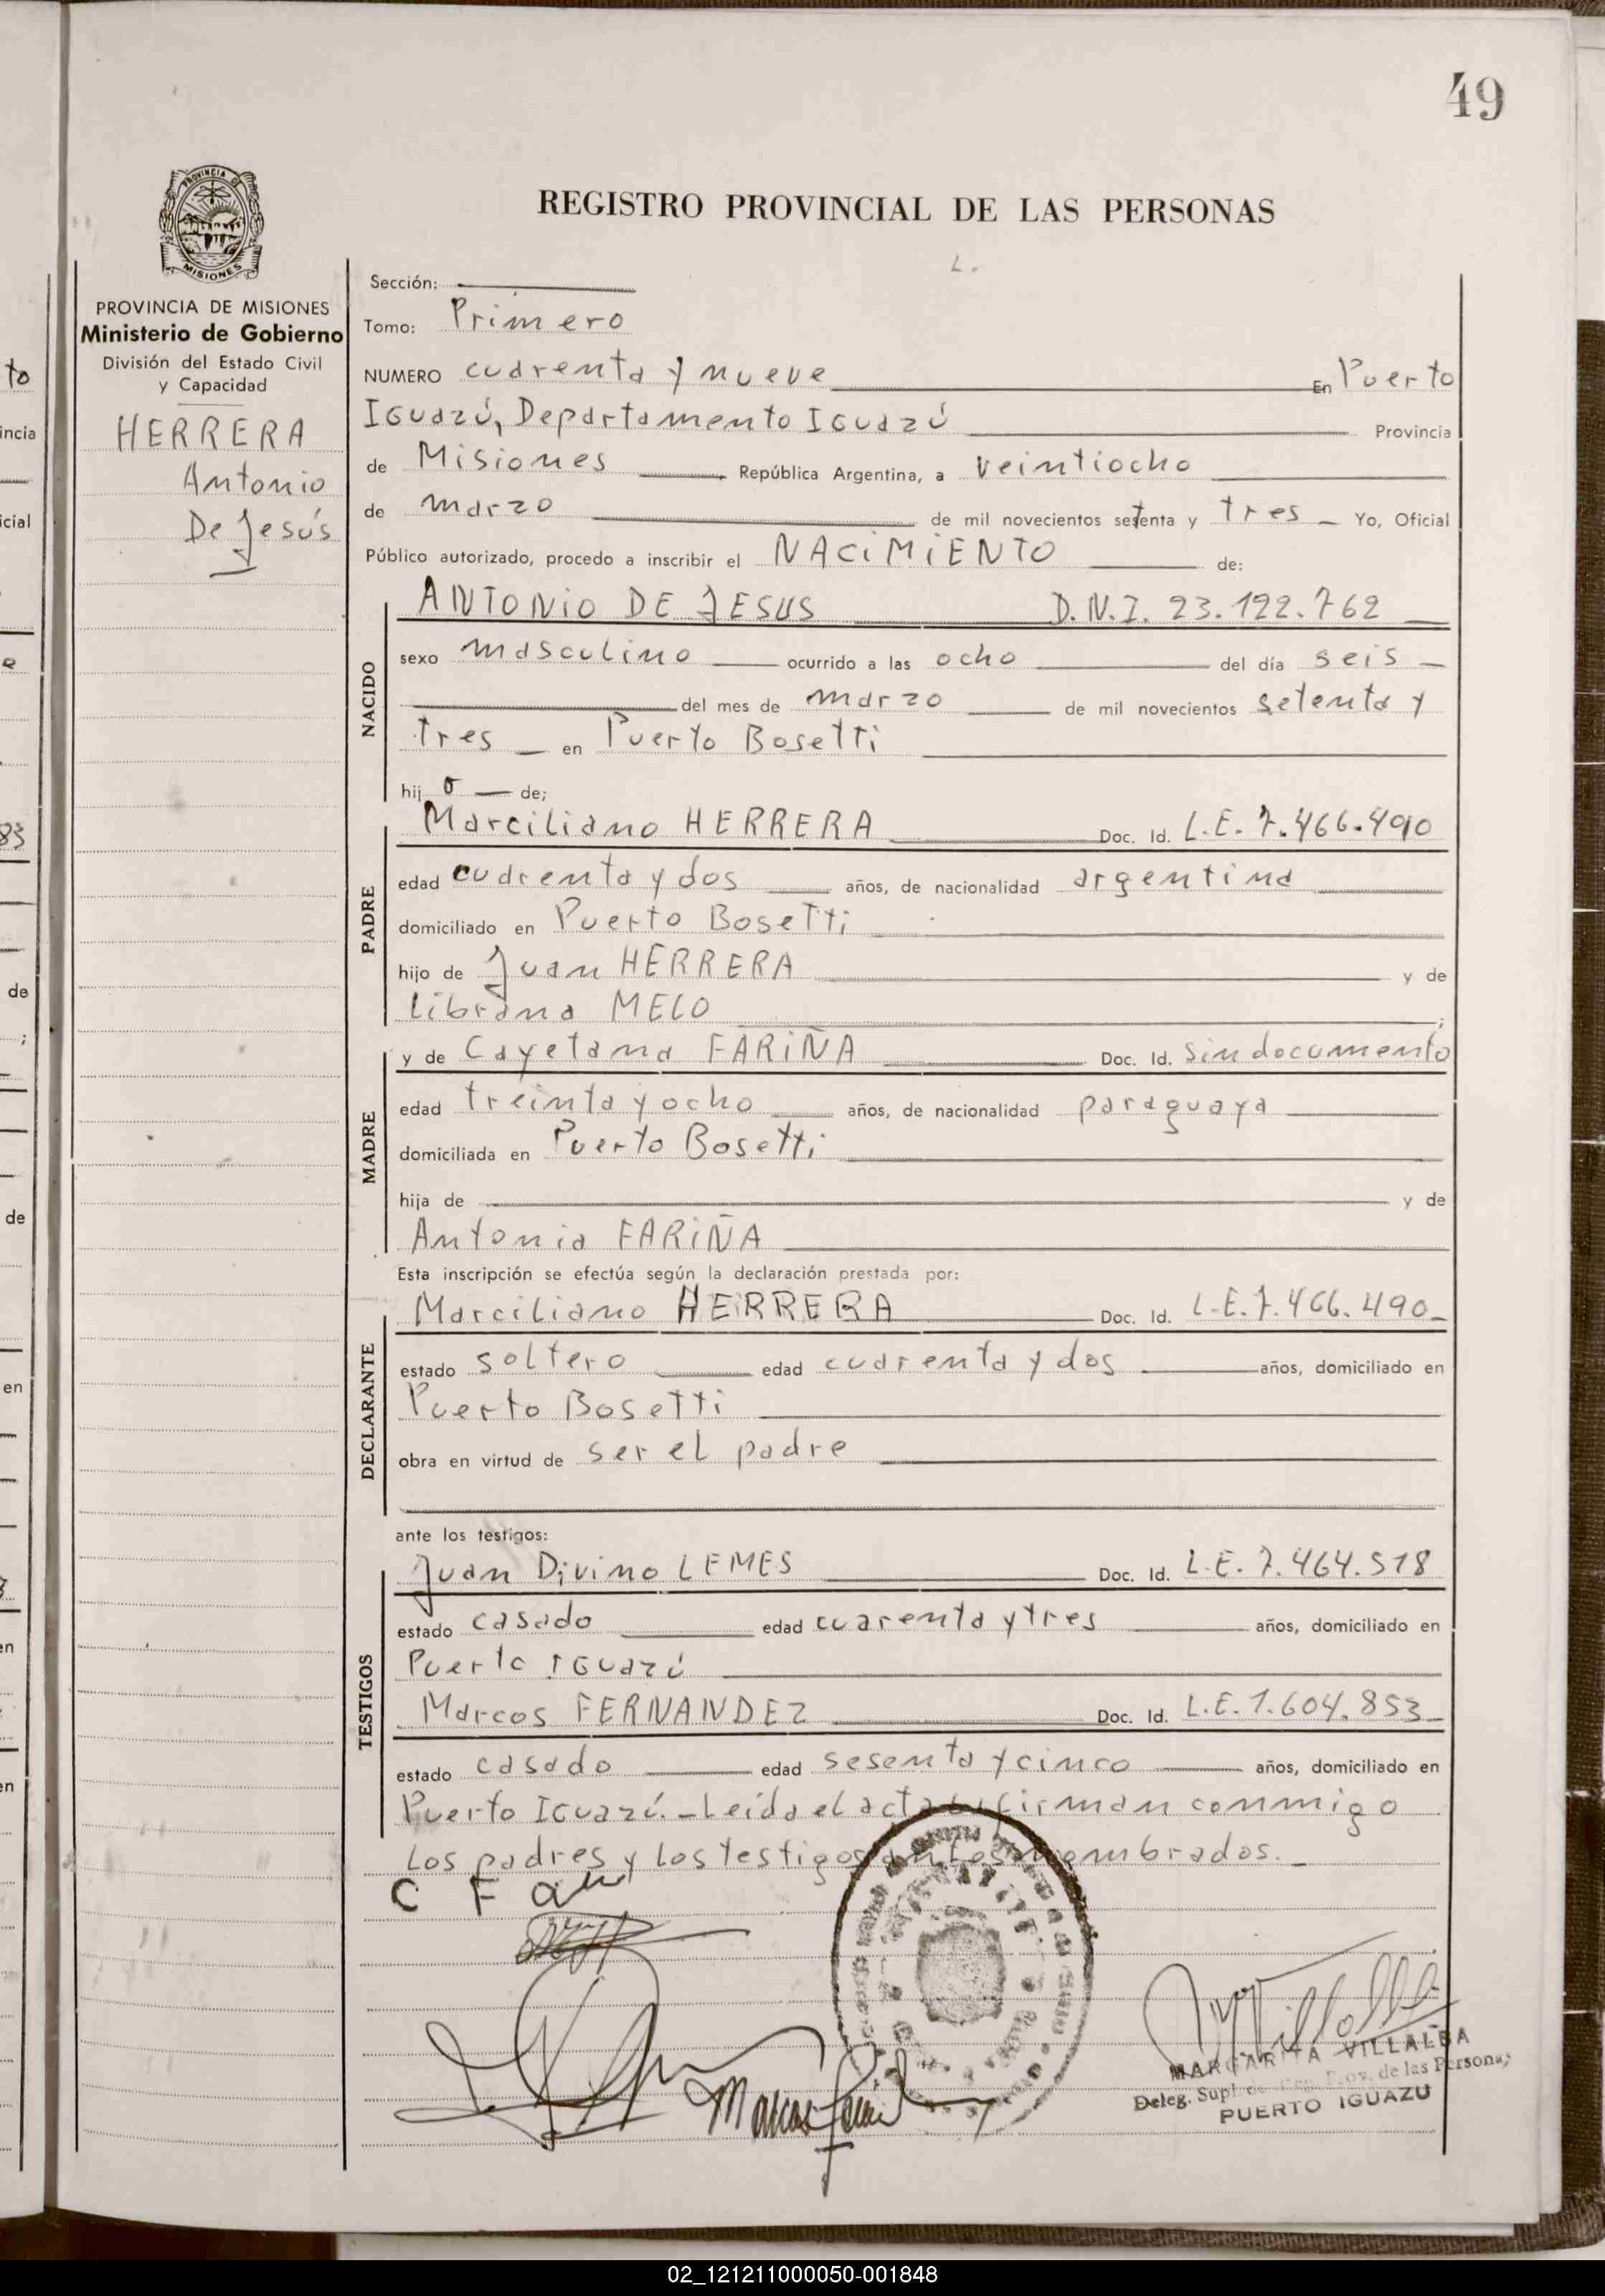 49
REGISTRO PROVINCIAL DE LAS PERSONAS
PROVINCIA DE
MISIONES
PROVINCIA DE MISIONES
Ministerio de Gobierno
División del Estado Civil
y Capacidad
HERRERA
Antonio
De Jesús
Sección:
Tomo: Primero
NUMERO cuarenta y nueve En Puerto
Iguazú, Departamento Iguazú Provincia
de Misiones República Argentina, a veintiocho
de marzo de mil novecientos setenta y tres Yo, Oficial
Público autorizado, procedo a inscribir el NACIMIENTO de:
NACIDO
ANTONIO DE JESUS D.N.I. 23.122.762
sexo masculino ocurrido a las ocho del día seis
del mes de marzo de mil novecientos setenta y
tres en Puerto Bosetti
hijo de;
PADRE
Marciliano HERRERA Doc. Id. L.E. 7.466.490
edad cuarenta y dos años, de nacionalidad argentina
domiciliado en Puerto Bosetti
hijo de Juan HERRERA y de
Librana MELO ;
MADRE
y de Cayetana FARIÑA Doc. Id. Sin documento
edad treinta y ocho años, de nacionalidad paraguaya
domiciliada en Puerto Bosetti
hija de y de
Antonia FARIÑA
Esta inscripción se efectúa según la declaración prestada por:
DECLARANTE
Marciliano HERRERA Doc. Id. L.E. 7.466.490
estado soltero edad cuarenta y dos años, domiciliado en
Puerto Bosetti
obra en virtud de ser el padre
ante los testigos:
TESTIGOS
Juan Divino LEMES Doc. Id. L.E. 7.464.518
estado casado edad cuarenta y tres años, domiciliado en
Puerto Iguazú
Marcos FERNANDEZ Doc. Id. L.E. 1.604.853
estado casado edad sesenta y cinco años, domiciliado en
Puerto Iguazú.- Leída el acta firman conmigo
los padres y los testigos antes nombrados.
C F
MARGARITA VILLALBA
Deleg. Supl. Prov. de las Personas
PUERTO IGUAZU
to
incia
icial
e
83
de
;
de
en
en
en
02_121211000050-001848